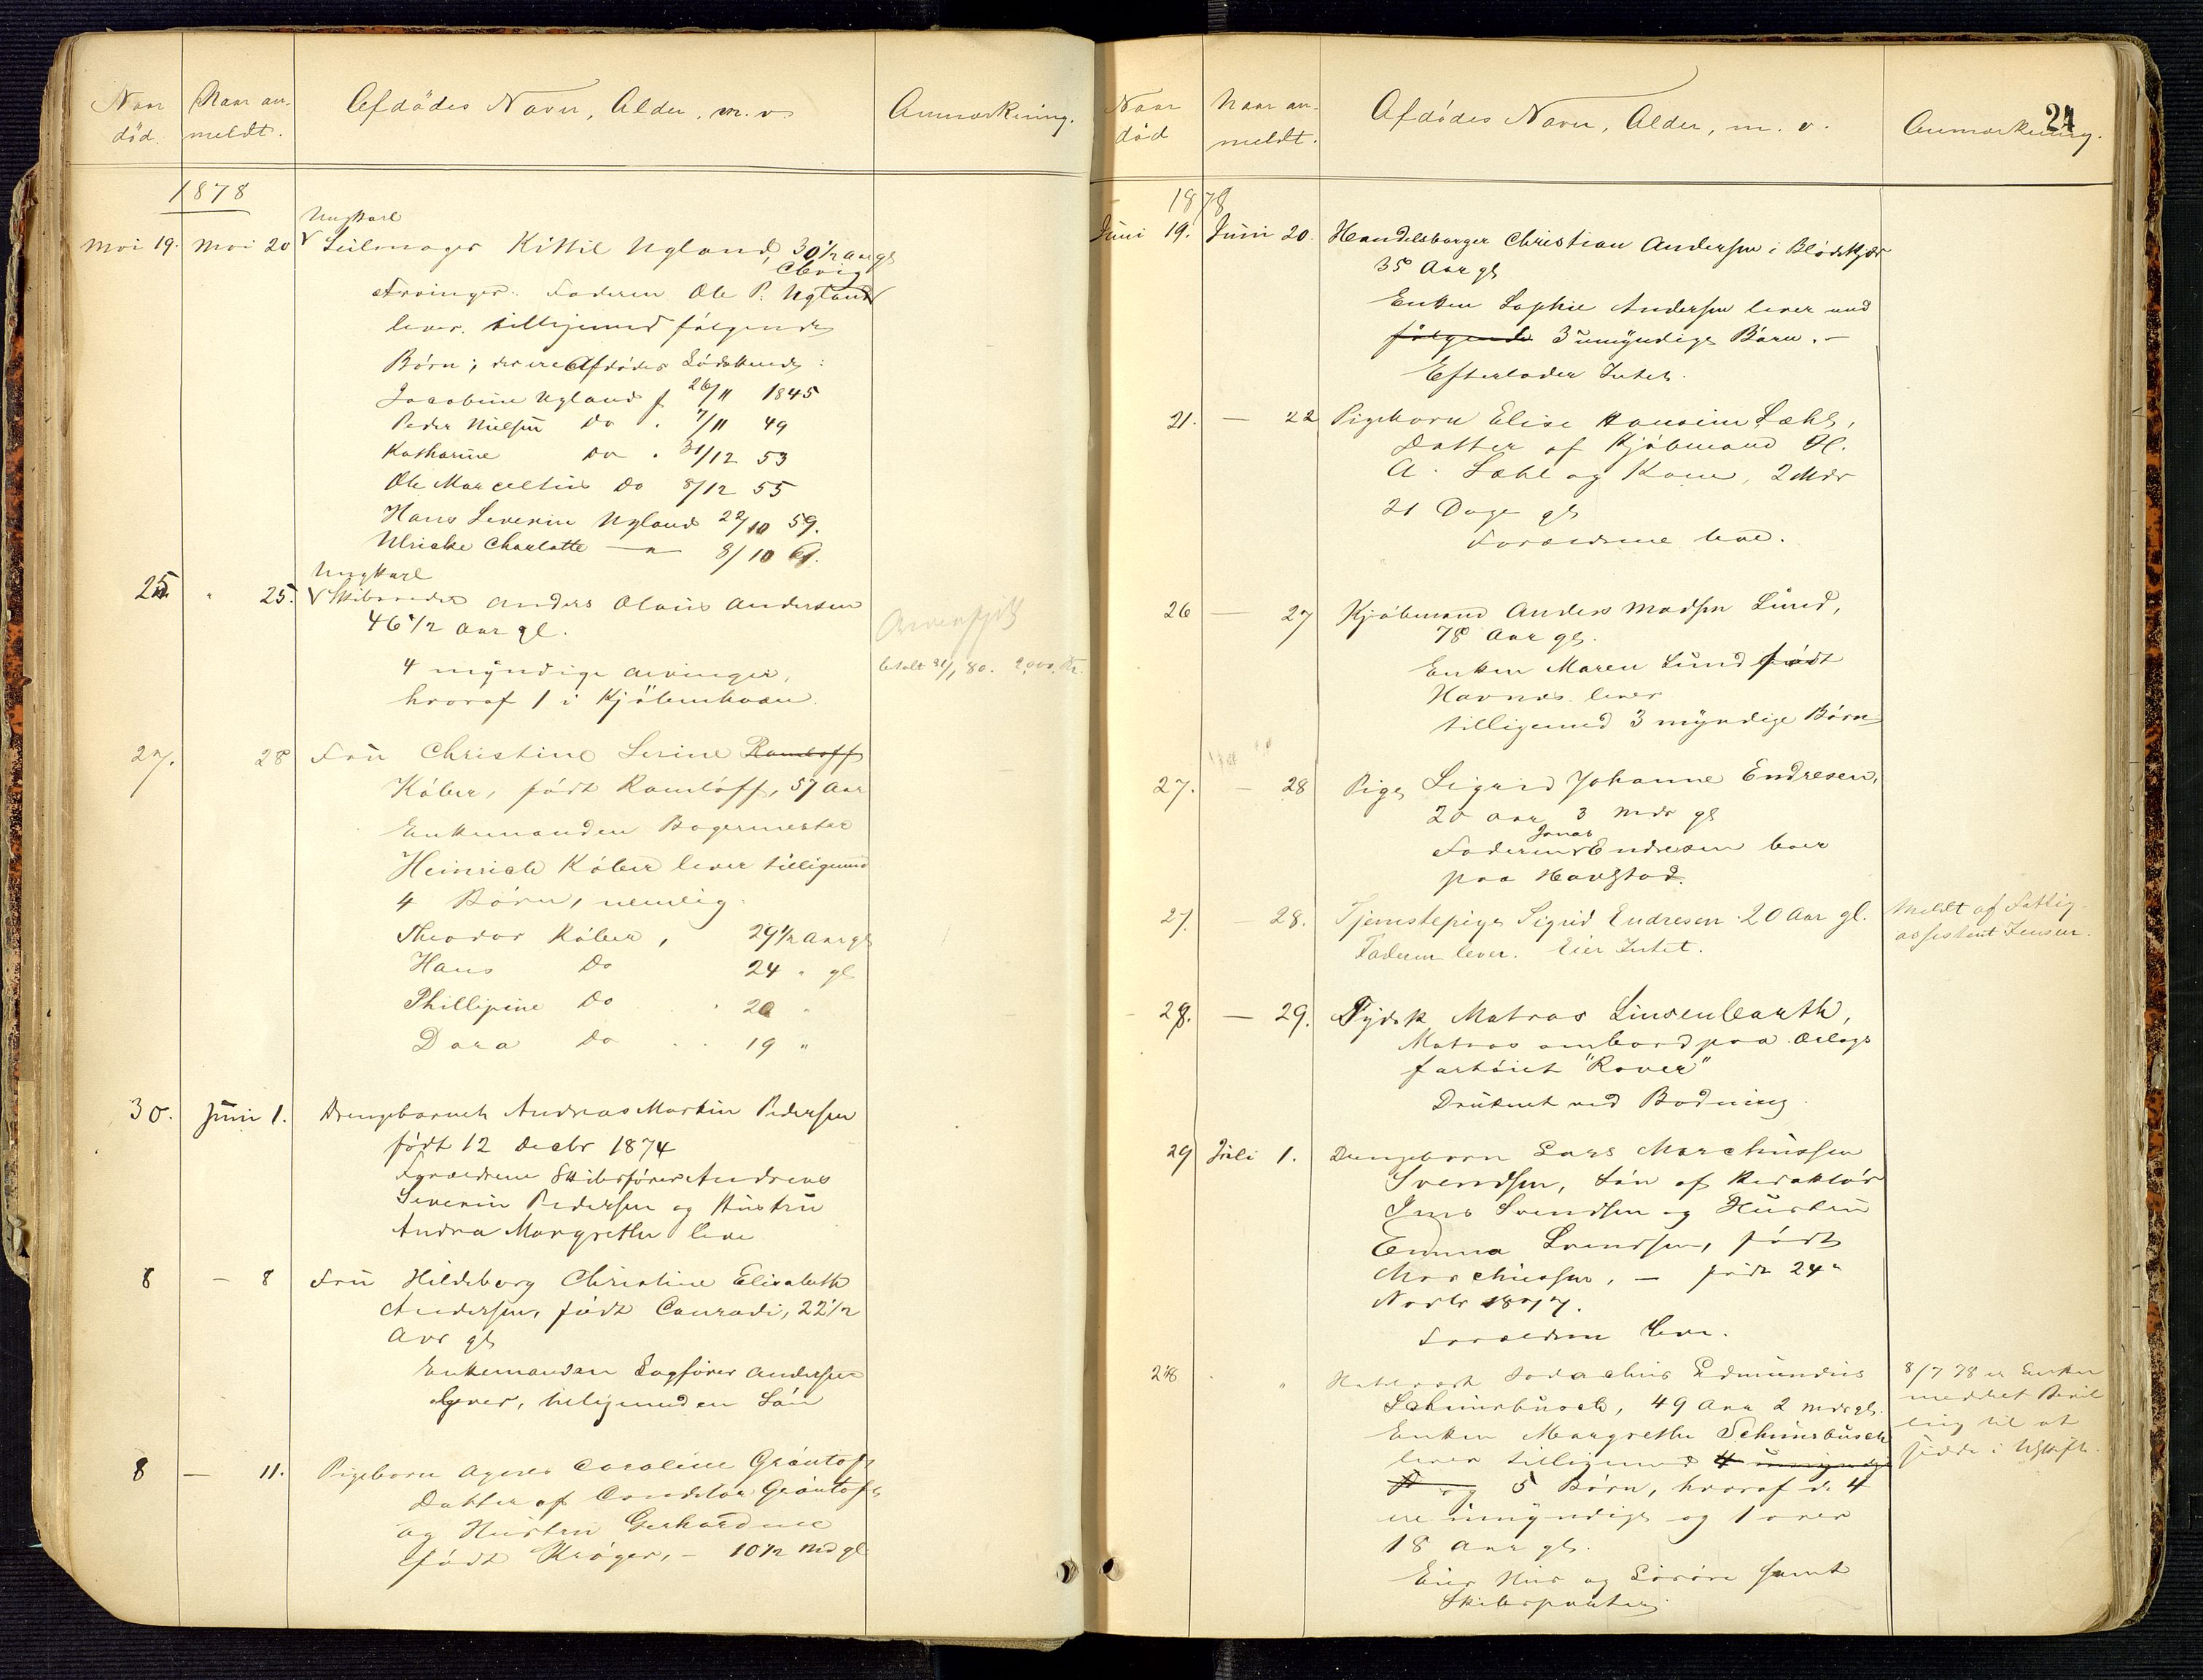 Naar død. Naar anmeldt. Afdødes Navn, Alder, m. v. Anmærkning.
1878
Ungkarl
Mai 19. Mai 20 Seilmager Kittil Ugland, 30 1/2 Aar gl
Arvinger: Faderen Ole P. Ugland
lever tilligemed følgende
Børn; der ere Afdødes Sødskende:
Jacobine Ugland f 26/11 1845
Peder Nielsen Do . 7/11 49
Katharine Do . 31/12 53
Ole Marcelius Do 8/12 55
Hans Severin Ugland 22/10 59.
Ulricke Charlotte — " — 8/10 61.
Ungkarl
25. " 25. Skibsreder Anders Olaus Andersen
46 1/2 Aar gl.
4 myndige Arvinger,
hvoraf 1 i Kjöbenhavn.
betalt 31/1 80. 2,000. Kr.
27. 28 Fru Christine Serine Ramloff
Köber, født Ramløff, 57 Aar
Enkemanden Bagermester
Heinrich Köber lever tilligemed
4 Børn, nemlig:
Theodor Köber, 29 1/2 Aar gl
Hans Do 24 " gl
Phillipine Do . 20 "
Dora Do . . 19 "
30. Juni 1. Drengebarnet Andreas Martin Pedersen
født 12 Decbr 1874
Forældrene Skibsfører Andreas
Severin Pedersen og Hustru
Andrea Margrethe leve
8 — 8 Fru Hildeborg Christine Elisabeth
Andersen, født Conradi, 22 1/2
Aar gl
Enkemanden Sagfører Andersen
lever, tilligemed en Søn
8 — 11. Pigebarn Agnes Caroline Gröntoft
Datter af Conditor Gröntoft
og Hustru Gerhardine
født Kröger, — 10 1/2 Md gl.
Naar død Naar anmeldt. Afdødes Navn, Alder, m. v. Anmærkning.
24
1878
Juni 19. Juni 20. Handelsborger Christian Andersen i Blødekjær
35 Aar gl
Enken Sophie Andersen lever med
følgende 3 umyndige Børn. —
Efterlader Intet.
21. — 22 Pigebarn Elise Hansine Dahl,
Datter af Kjøbmand H.
A. Dahl og Kone, 2 Mdr
21 Dage gl
Forældrene leve.
26 — 27 Kjøbmand Anders Madsen Lund,
78 Aar gl.
Enken Maren Lund født
Havnes lever
tilligemed 3 myndige Børn
27. — 28 Pige Sigrid Johanne Endresen,
20 Aar 3 Mdr gl
Faderen Jonas Endresen boer
paa Havstad.
27. 28. Tjenstepige Sigrid Endresen 20 Aar gl.
Faderen lever. Eier Intet.
Meldt af Fattig-
assistent Jensen.
28. — 29. Tydsk Matros Linsenbarth,
Matros ombord paa Orlogs
fartøiet "Rover"
Druknet ved Badning.
29 Juli 1. Drengebarn Lars Marchussen
Svendsen, Søn af Redaktør
Jens Svendsen og Hustru
Emma Svendsen, født
Marchussen, — født 24de
Novbr 1877.
Forældrene leve.
28 " Edmundus
Schinsbusch, 49 Aar 2 Mdr gl.
Enken Margrethe Schinsbusch
lever tilligemed 4 umyndige
og 5 Børn, hvoraf de 4
ere umyndige og 1 over
18 Aar gl.
Eier Hus og Løsøre samt
Skibsparter.
8/7 78 er Enken
meddelt Bevil
ling til at
sidde i Uskifte.